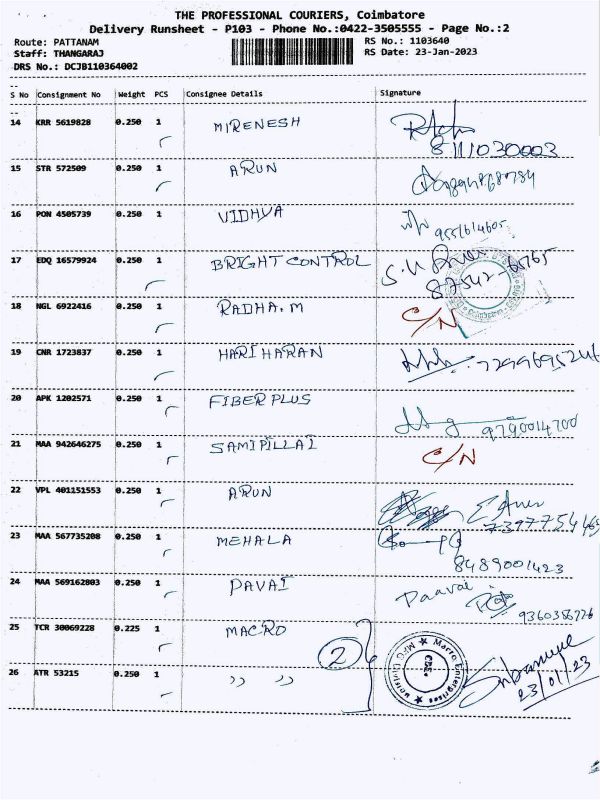 THE PROFESSIONAL COURIERS, Coimbatore
Delivery Runsheet - P103 - Phone No.:0422-3505555 - Page No.:2
Route: PATTANAM RS No.: 1103640
Staff: THANGARAJ RS Date: 23-Jan-2023
DRS No.: DCJB110364002
S No Consignment No Weight PCS Consignee Details Signature
14 KRR 5619828 0.250 1 MIRENESH
8111030003
15 STR 572509 0.250 1 ARUN
16 PON 4505739 0.250 1 VIDHYA
9551614605
17 EDQ 16579924 0.250 1 BRIGHT CONTROL
87542-65765
18 NGL 6922416 0.250 1 RADHA.M C/N
19 CNR 1723837 0.250 1 HARIHARAN
20 APK 1202571 0.250 1 FIBERPLUS
9790014700
21 MAA 942646275 0.250 1 SAMIPILLAI C/N
22 VPL 401151553 0.250 1 ARUN
23 MAA 567735208 0.250 1 MEHALA
8489001423
24 MAA 569162803 0.250 1 PAVAI Paavai
9360386726
25 TCR 30069228 0.225 1 MACRO
2
26 ATR 53215 0.250 1 ,, ,,
Macro Enterprises
23/01/23